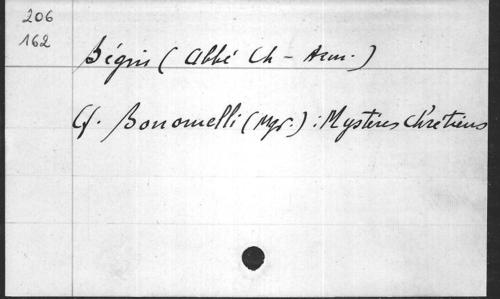 206
162
Bégin (Abbé Ch-Arm.)
Cf. Bonomelli (Mgr.) : Mystères Chrétiens